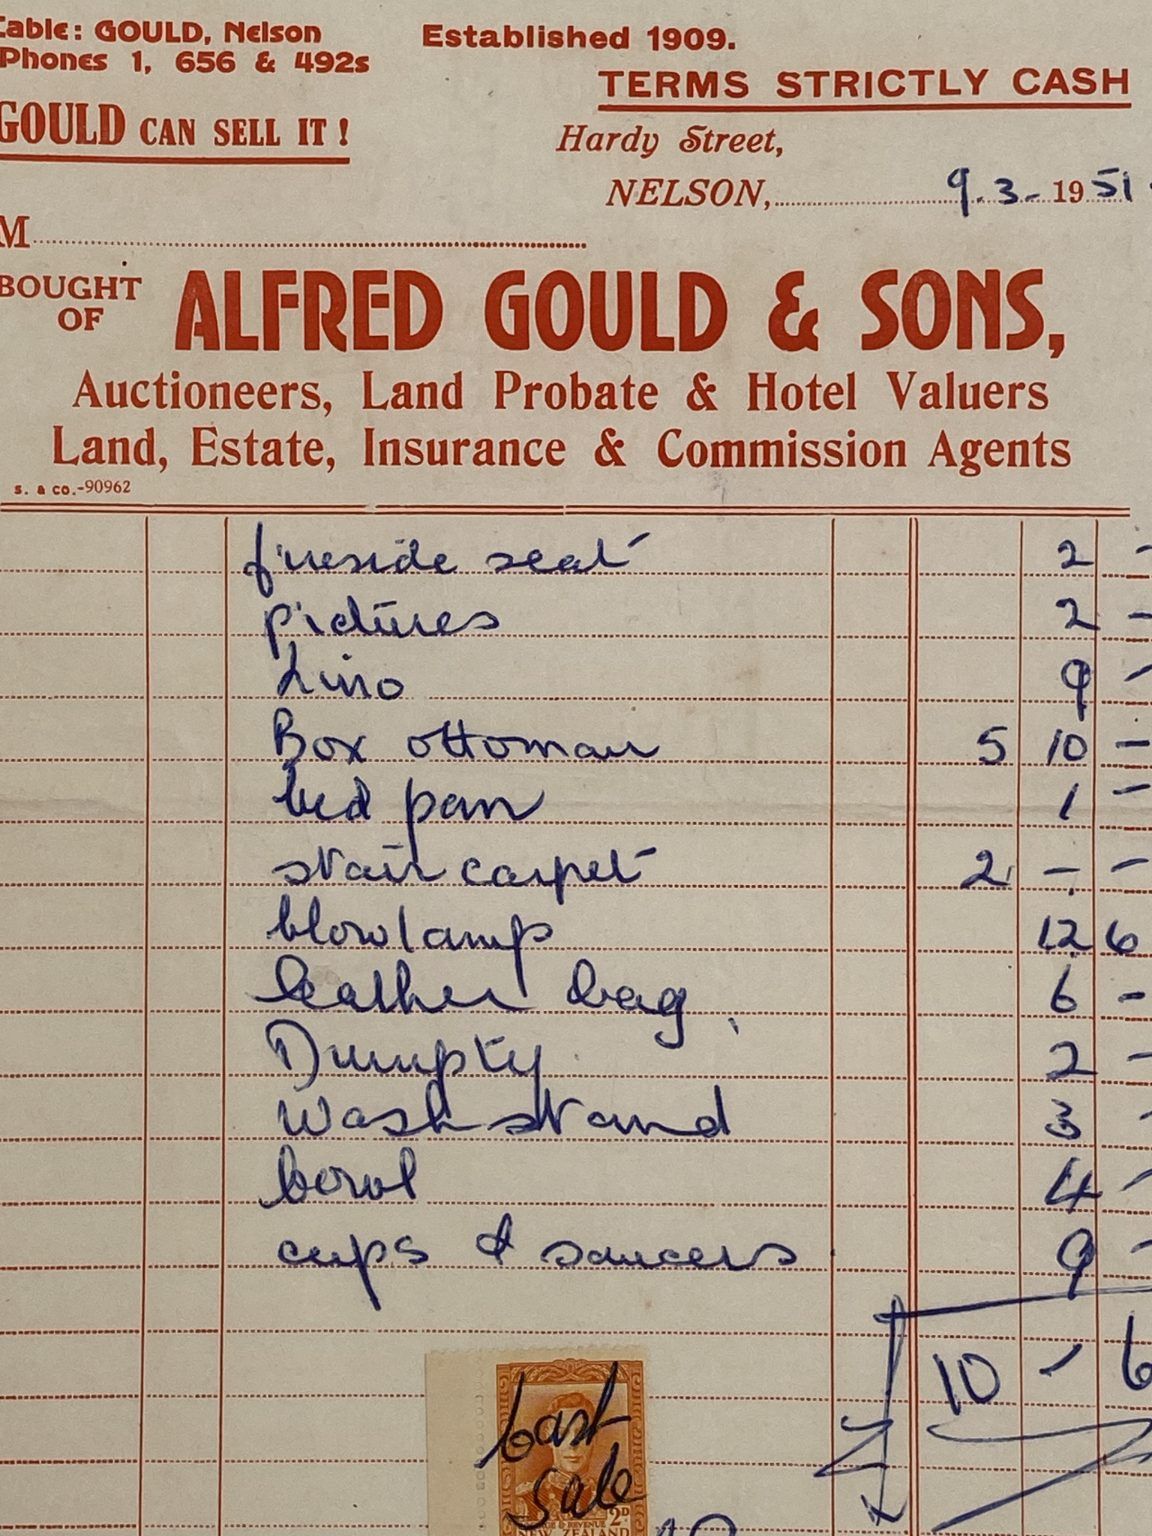 Cable: GOULD, Nelson
Established 1909.
Phones 1, 656 & 492s
TERMS STRICTLY CASH
GOULD CAN SELL IT!
Hardy Street,
NELSON, 9.3-1951.
M
BOUGHT OF ALFRED GOULD & SONS,
Auctioneers, Land Probate & Hotel Valuers
Land, Estate, Insurance & Commission Agents
S. & CO.-90962
fireside seat 2 -
pictures 2 -
Lino 9 -
Box ottoman 5 10 -
bed pan 1 -
stair carpet 2 - -
blowlamp 12 6
leather bag 6 -
Dumpty 2 -
Wash stand 3 -
bowl 4 -
cups & saucers 9 -
£ 10 - 6
Cash
Sale
2D
NEW ZEALAND